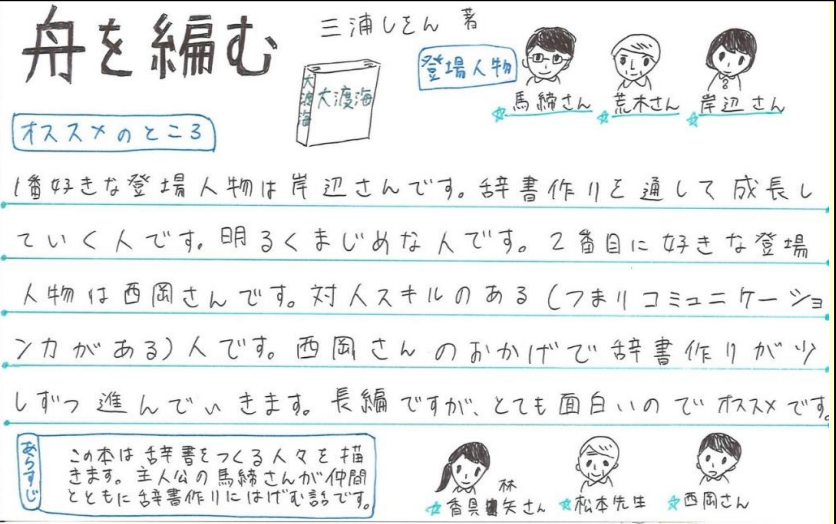 舟を編む
三浦しをん 著
大渡海
大渡海
登場人物
馬締さん
荒木さん
岸辺さん
オススメのところ
1番好きな登場人物は岸辺さんです。辞書作りを通して成長し
ていく人です。明るくまじめな人です。2番目に好きな登場
人物は西岡さんです。対人スキルのある(つまりコミュニケーショ
ン力がある)人です。西岡さんのおかげで辞書作りが少
しずつ進んでいきます。長編ですが、とても面白いのでオススメです。
あらすじ
この本は辞書をつくる人々を描
きます。主人公の馬締さんが仲間
とともに辞書作りにはげむ話です。
林
香具矢さん
松本先生
西岡さん